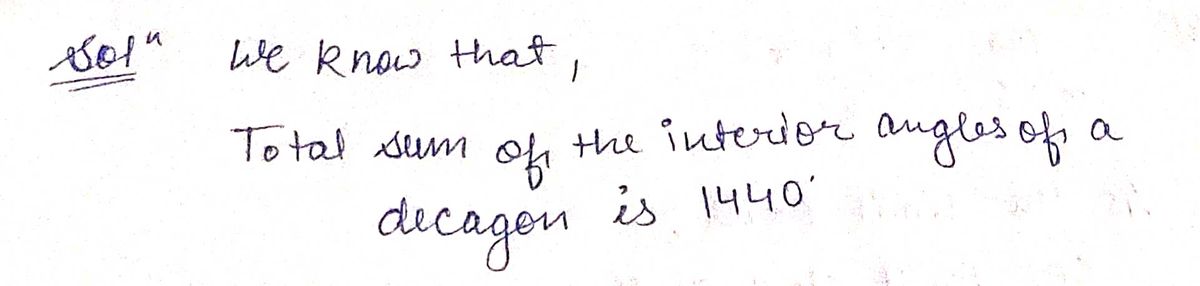 Solⁿ We know that,
Total sum of the interior angles of a
decagon is 1440°